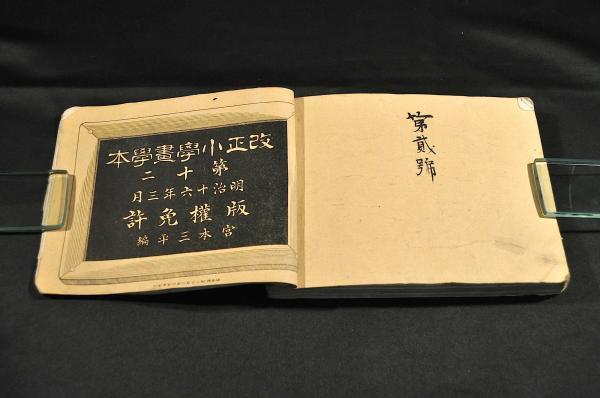 改正小學畫學本
第十二
明治十六年三月
版權免許
宮本三平編
第貳號